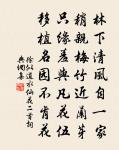 林下清風自一家
稍親梅竹近蘭芽
只緣羞與凡花伍
移植名園不肯花
徐似道水仙花二首詞
典網集